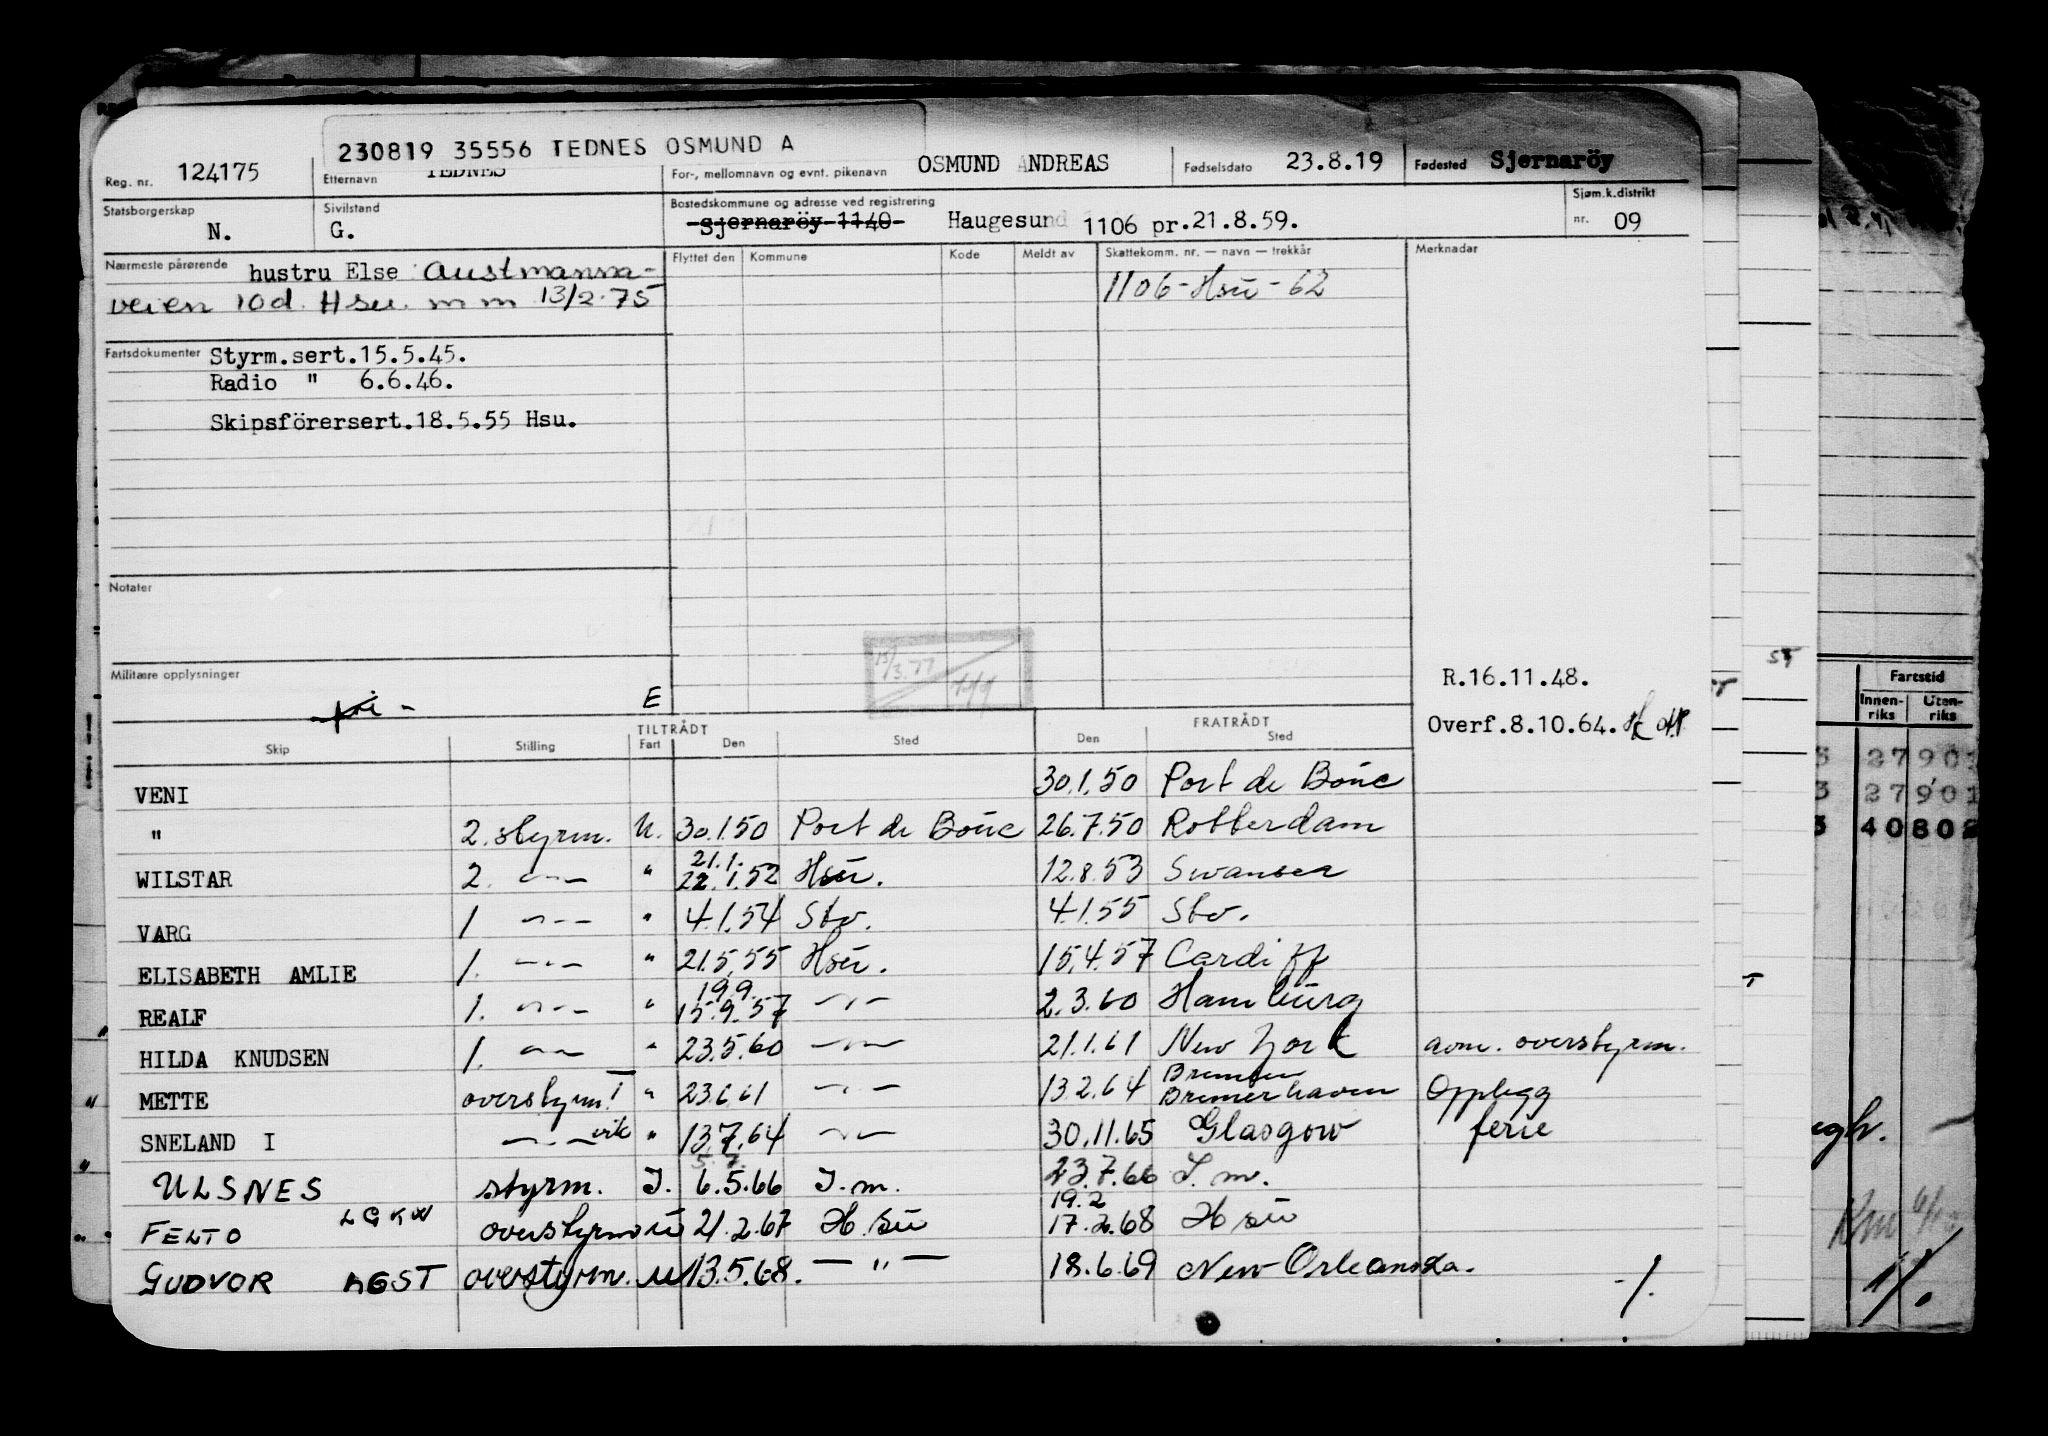 230819 35556 TEDNES OSMUND A
Reg. nr. 124175 Etternavn TEDNES For-, mellomnavn og evnt. pikenavn OSMUND ANDREAS Fødselsdato 23.8.19 Fødested Sjernaröy
Statsborgerskap N. Sivilstand G. Bostedskommune og adresse ved registrering Sjernaröy 1140 Haugesund 1106 pr.21.8.59. Sjøm.k.distrikt nr. 09
Nærmeste pårørende hustru Else Austmanna-
veien 10d. Hsu. m m 13/2-75
Flyttet den Kommune Kode Meldt av Skattekomm. nr. — navn — trekkår Merknadar
1106-Hsu-62
Fartsdokumenter Styrm.sert.15.5.45.
Radio " 6.6.46.
Skipsförersert.18.5.55 Hsu.
Notater
Militære opplysninger
fri - E
R.16.11.48.
Overf.8.10.64.
TILTRÅDT FRATRÅDT
Skip Stilling Fart Den Sted Den Sted
VENI 30.1.50 Port de Bouc
" 2. styrm. U. 30.1.50 Port de Bouc 26.7.50 Rotterdam
21.1.
WILSTAR 2. —"— " 22.1.52 Hsu. 12.8.53 Swansea
VARG 1 —"— " 4.1.54 Stv. 4.1.55 Stv.
ELISABETH AMLIE 1. —"— " 21.5.55 Hsu. 15.4.57 Cardiff
19.9.
REALF 1. —"— " 15.9.57 —"— 2.3.60 Hamburg
HILDA KNUDSEN 1. —"— " 23.5.60 —"— 21.1.61 New York avm. overstyrm.
Bremen
METTE overstyrm. I " 23.6.61 —"— 13.2.64 Bremerhaven Opplegg
SNELAND I —"— vik " 13.7.64 —"— 30.11.65 Glasgow ferie
5.7.
ULSNES styrm. I. 6.5.66 I.m. 23.7.66 I.m.
19.2
FELTO LGKW overstyrm U 21.2.67 Hsu 17.2.68 Hsu
GUDVOR LGST overstyrm. U 13.5.68. —"— 18.6.69 New Orleans La. -/.
Fartstid
Innen-riks Uten-riks
27901
27901
4080